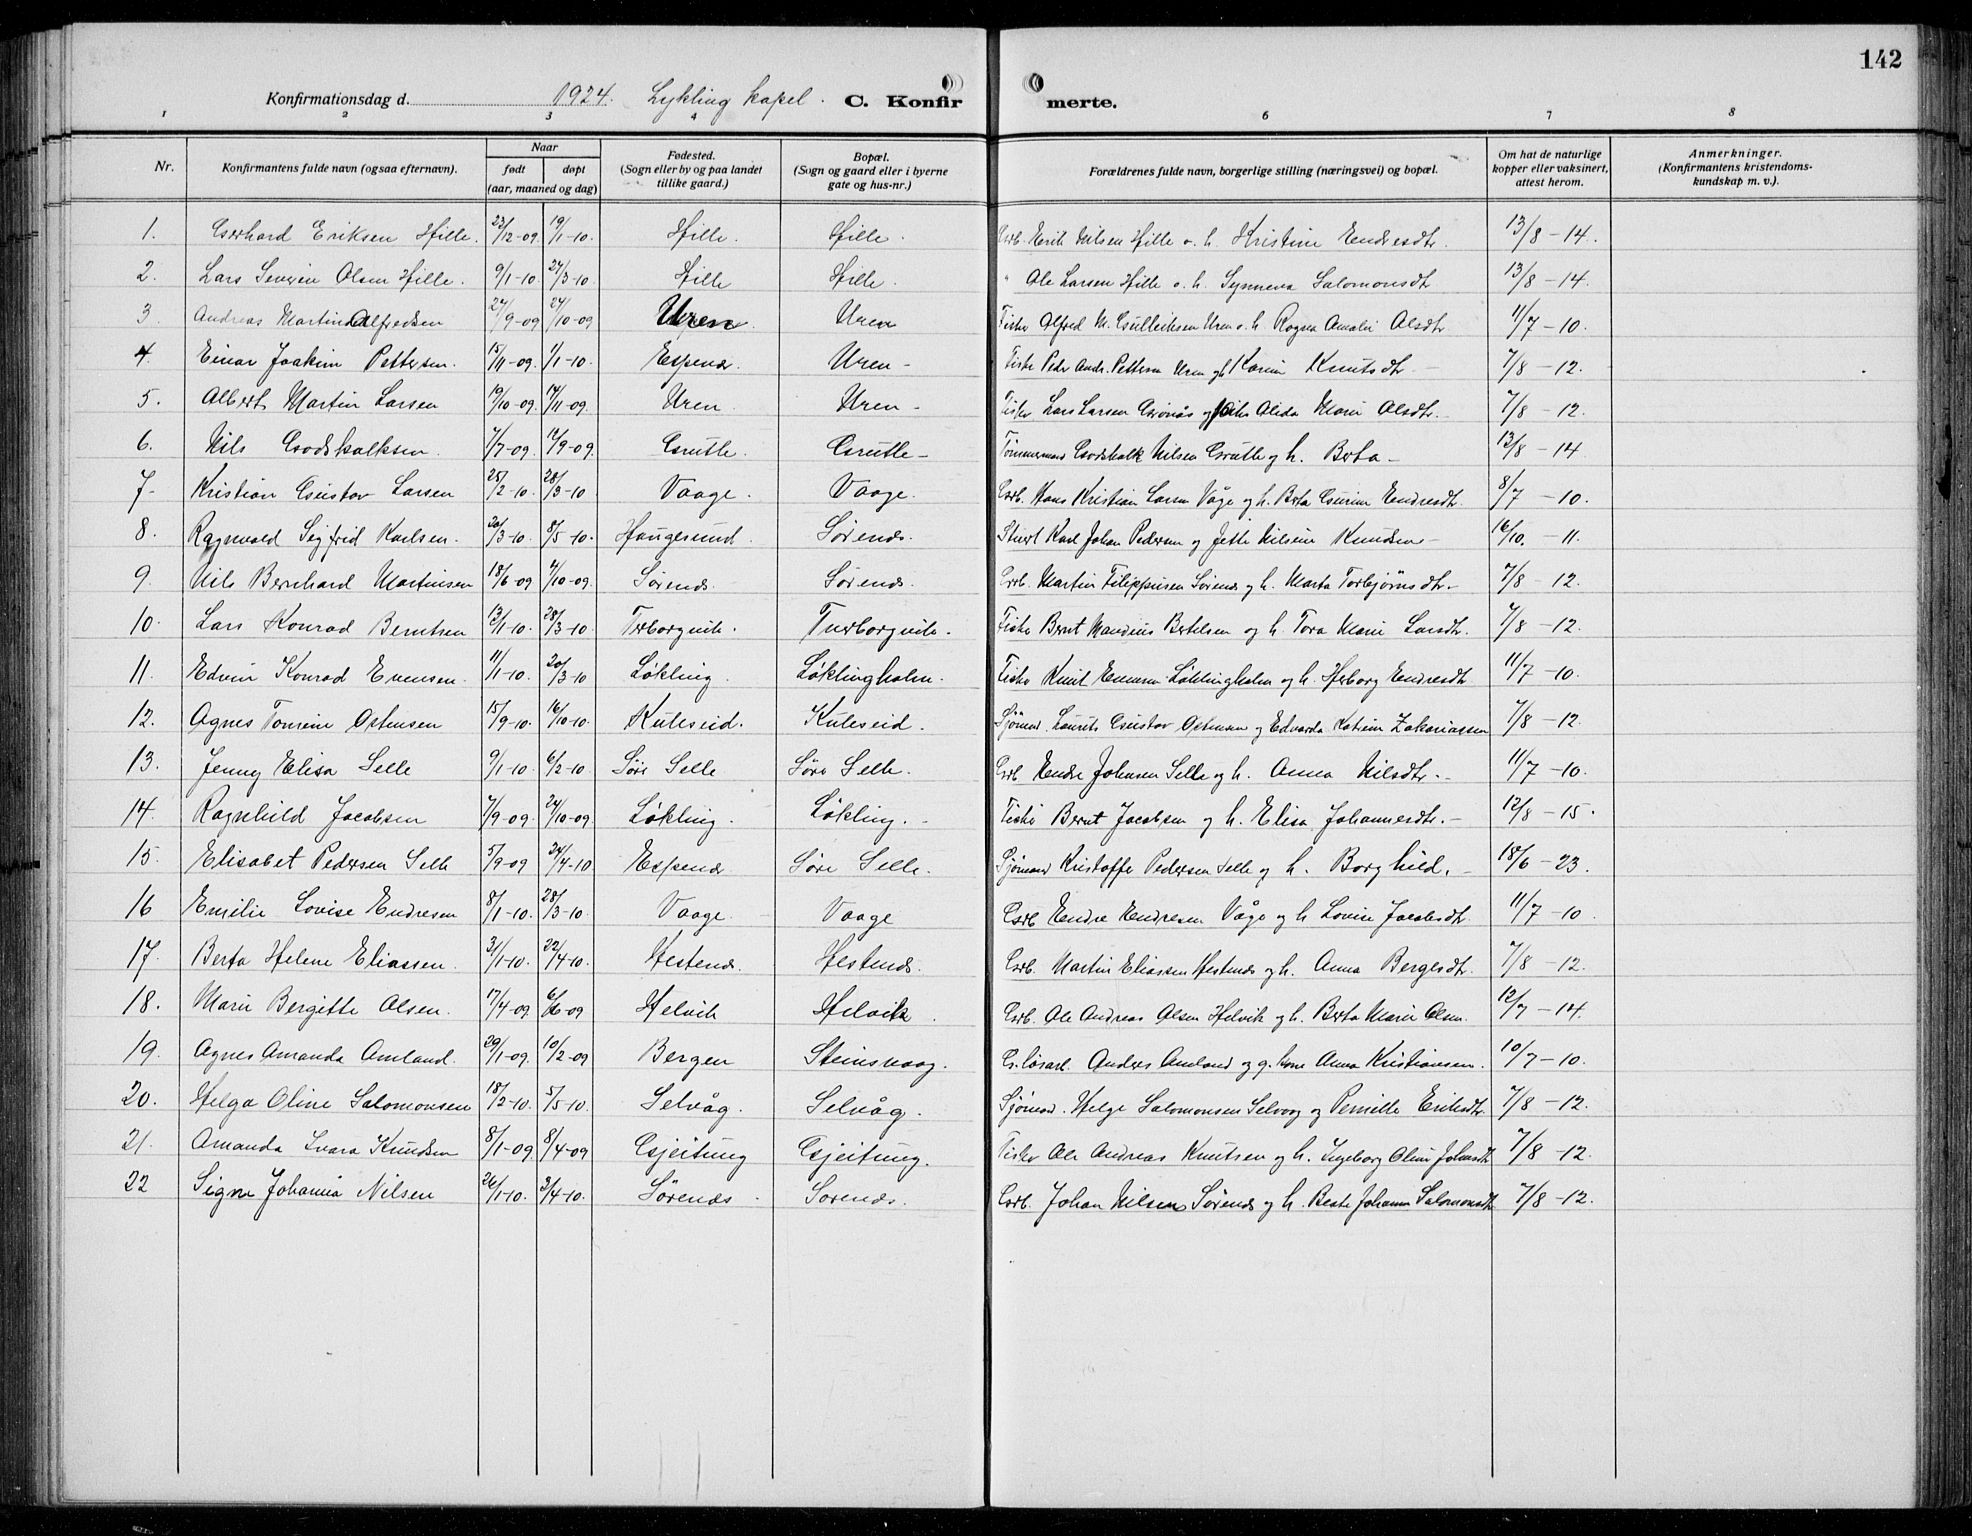 142
Konfirmationsdag d. 1924. Lykling kapel. C. Konfirmerte.
1 2 3 4 6 7 8
Nr. Konfirmantens fulde navn (ogsaa efternavn). Naar født døpt (aar, maaned og dag) Fødested. (Sogn eller by og paa landet tillike gaard.) Bopæl. (Sogn og gaard eller i byerne gate og hus-nr.) Forældrenes fulde navn, borgerlige stilling (næringsvei) og bopæl. Om hat de naturlige kopper eller vaksinert, attest herom. Anmerkninger. (Konfirmantens kristendomskundskap m. v.).
1. Gerhard Eriksen Hille. 23/12-09. 19/1-10. Hille. Hille. Grb. Erik Nilsen Hille o. h. Kristine Endresdtr. 13/8-14.
2. Lars Severin Olsen Hille. 9/1-10. 27/3-10. Hille Hille. " Ole Larsen Hille o. h. Synneva Salomonsdtr 13/8-14.
3. Andreas Martin Alfredsen 27/9-09 24/10-09 Uren. Uren Fisker Alfred M. Gulleiksen Uren o. h. Ragna Amalie Olsdtr 11/7-10.
4. Einar Joakim Pettersen. 15/11-09. 1/1-10. Espenes. Uren- Fisker Peder Andr. Pettersen Uren og h. Karine Knutsdtr- 7/8-12.
5. Albert Martin Larsen 19/10-09. 14/11-09. Uren. Uren- Fisker Lars Larsen Grønås og Alida Marie Olsdtr.- 7/8-12.
6. Nils Godskalksen. 7/7-09. 12/9-09. Grutle. Grutle- Tømmermand Godskalk Nilsen Grutle og h. Berta- 13/8-14
7- Kristian Gustav Larsen 25/2-10. 28/3-10 Vaage. Vaage. Grb. Hans Kristian Larsen Våge og h. Berta Gurine Endresdtr. 8/7-10.
8. Ragnvald Sigfrid Karlsen. 20/3-10. 8/5-10. Haugesund. Sørenes. Stuert Karl Johan Pedersen og Jette Nilsine Knudsen- 16/10.-11.
9. Nils Bernhard Martinsen 18/6-09 4/10-09. Sørenes. Sørenes. Grb. Martin Filippusen Sørenes og h. Marta Torbjørnsdtr.- 7/8-12.
10. Lars Konrad Berntsen 13/1-10. 28/3-10. Turborgvik. Turborgvik. Fisker Bernt Mandius Bertelsen og h. Tora Marie Larsdtr. 7/8-12.
11. Edvin Konrad Evensen. 11/1-10. 20/3-10 Løkling. Løklingholm. Fisker Knut Evensen Løklingholm og h. Herborg Endresdtr 11/7-10.
12. Agnes Tomine Ostensen 15/9-10. 16/10-10. Kuleseid. Kuleseid. Sjømand. Laurits Gustav Ostensen og Edvarda Katrine Zakariassen 7/8-12.
13. Jenny Elisa Selle 9/1-10. 6/2-10. Søre Selle Søre Selle. Grb Endre Johnsen Selle og h. Anna Nilsdtr.- 11/7-10.
14. Ragnhild Jacobsen 7/9-09. 24/10-09. Løkling. Løkling.- Fisker Bernt Jacobsen og h. Elisa Johannesdtr.- 12/8-15.
15. Elisabet Pedersen Selle 5/9-09 24/4-10 Espenes Søre Selle. Sjømand Kristoffer Pedersen Selle og h. Borghild.- 18/6-23.
16 Emilie Lovise Endresen 8/1-10. 28/3-10. Vaage. Vaage Grb Endre Endresen Våge og h Lovise Jacobsdtr. 11/7-10
17. Berta Helene Eliassen. 3/1-10. 22/4-10. Hestenes. Hestenes. Grb. Martin Eliassen Hestenes og h. Anna Bergesdtr. 7/8-12.
18. Marie Bergitte Olsen. 17/4-09 6/6-09 Helvik Helvik. Grb. Ole Andreas Olsen Helvik og h. Berta Marie Olsen. 12/7-14.
19. Agnes Amanda Amland. 29/1-09. 10/2-09 Bergen Steinsvaag. Anders Amland og Anna Kristiansen. 10/7-10.
20. Helga Oline Salomonsen 18/2-10. 5/5-10. Selvåg. Selvåg. Sjømand. Helge Salomonsen Selvaag og Pernille Eriksdtr. 7/8-12.
21. Amanda Svara Knudsen 8/1-09. 8/4-09 Gjeitung Gjeitung. Fisker Ole Andreas Knutsen og h. Ingeborg Oline Johnsdtr 7/8-12.
22 Signe Johanna Nilsen 26/1-10. 3/4-10. Sørenes. Sørenes. Grb. Johan Nilsen Sørenes og h. Beate Johanna Salomonsdtr 7/8-12.